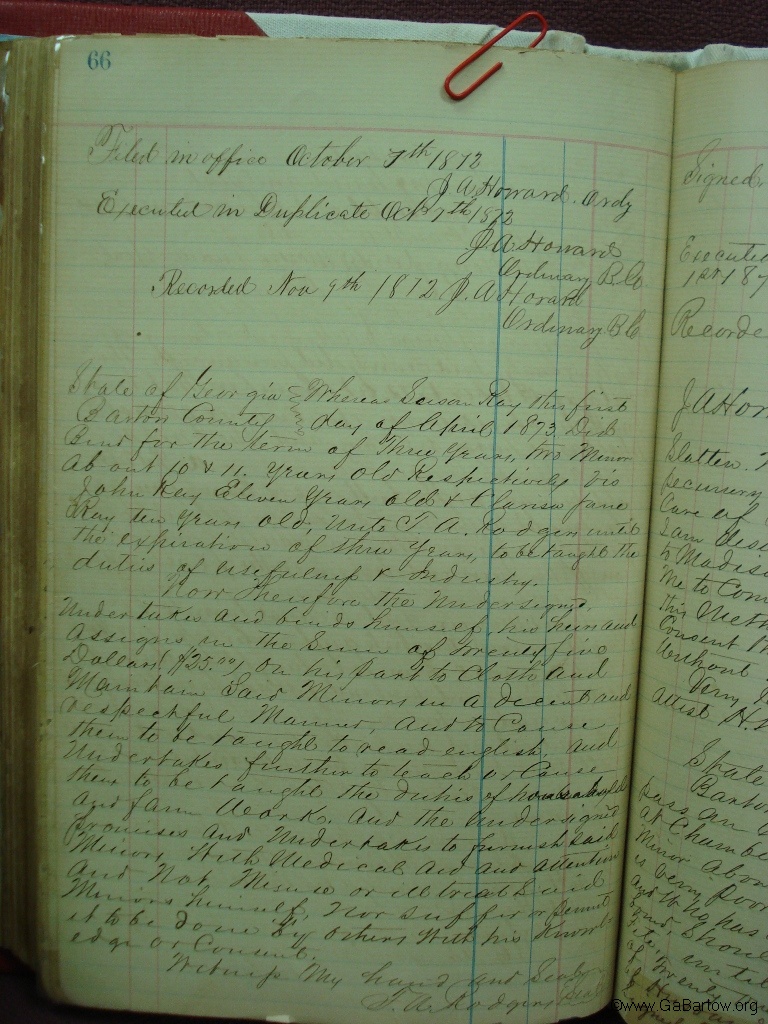 66
Filed in office October 7th 1872
J. A. Howard. Ordy
Executed in Duplicate Octr 7th 1872
J. A. Howard
Ordinary B Co
Recorded Nov 9th 1872 J. A Horard
Ordinary B Co
State of Georgia Whereas Susan Ray this first
Bartow County day of April 1873 Did
Bind for the term of Three Years, two Minor
about 10 & 11. Years old Respectively Viz
John Ray Eleven Years old & Clarisa Jane
Ray ten Years old, Unto T. A. Rodgers until
the expiration of three Years, to be taught the
duties of usefulness & Industry.
Now Therefore the Undersigned,
Undertakes and binds himself, his heirs and
assigns in the Sum of Twenty five
Dollars ($25.00) on his part to Cloth and
Maintain Said Minors in a decent and
respectful Manner, and to Cause
them to be taught to read english, and
Undertakes further to teach or Cause
them to be taught the duties of household
and farm Work. And the Undersigned
Promises and Undertakes to furnish Said
Minors With Medical Aid and attention
and Not Misuse or illtreat Said
Minors himself, Nor suffer or Permit
it to be done by others With his Knowl-
edge or Consent.
Witness My hand and Seal
T. A. Rodgers Seal
Signed.
Executed
1st 187
Recorde
J A Hor
Slatten.
Care of
to Madis
Me to Com
this
Consent
Without
Very
attest H.
State
Bartow
pass an
at Chambe
Minor abov
is Very Poor
and
Shoul
until
©www.GaBartow.org